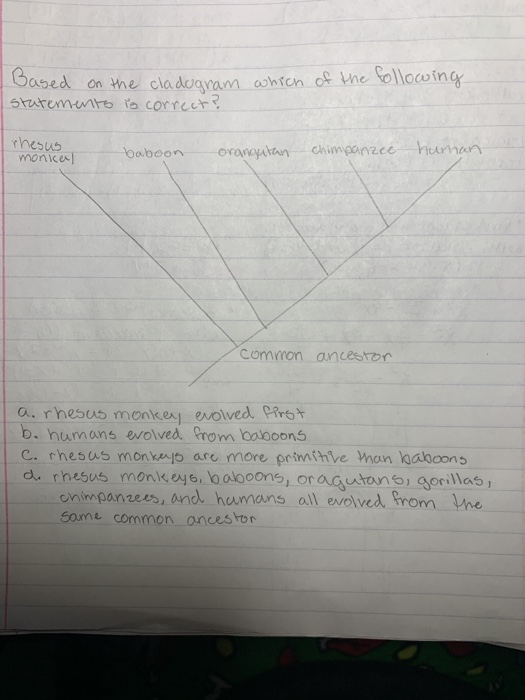 Based on the cladogram which of the following
statements is correct?
rhesus
monkey
baboon orangutan chimpanzee human
common ancestor
a. rhesus monkey evolved first
b. humans evolved from baboons
c. rhesus monkeys are more primitive than baboons
d. rhesus monkeys, baboons, oragutans, gorillas,
chimpanzees, and humans all evolved from the
same common ancestor